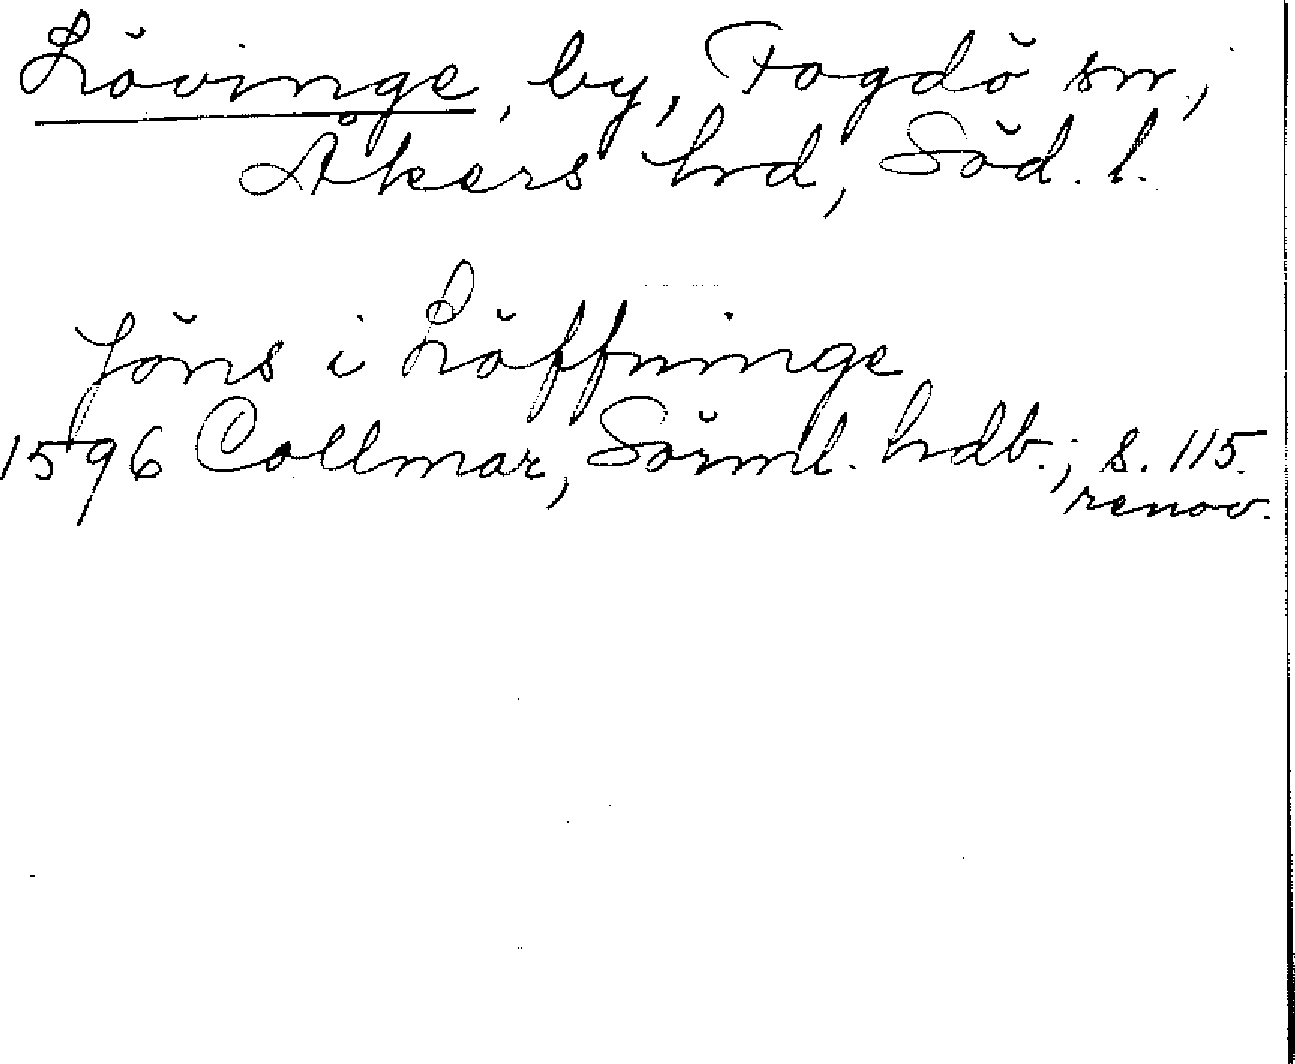 Lövinge, by, Fogdö sn,
Åkers hd, Söd. l.
Jöns i Löffninge
1596 Collmar, Sörml. hdb.; s. 115.
renov.